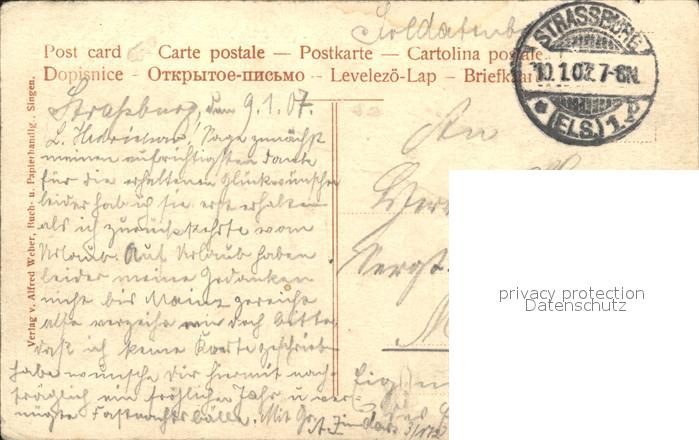 Soldatenb
Post card — Carte postale — Postkarte — Cartolina postale
Dopisnice - Открытое-письмо - Levelező-Lap - Briefkaart
STRASSBURG
10.1.07. 7-8N.
(ELS.) 1.
Verlag v. Alfred Weber, Buch- u. Papierhandlg., Singen.
Straßburg, den 9.1.07.
L. Sage zunächst
meinen aufrichtigsten Dank
für die erhaltenen Glückwünsche
leider hab ich sie erst erhalten
als ich zurückkehrte vom
Urlaub. Auf Urlaub haben
leider meine Gedanken
nicht bis Mainz gereicht
also verzeihe mir doch bitte,
daß ich keine Karte geschrieb
habe wünsche Dir hiermit nach-
träglich ein fröhliches Jahr u ver-
gnügte Fastnachtsbälle. Mit Gr.
An
privacy protection
Datenschutz